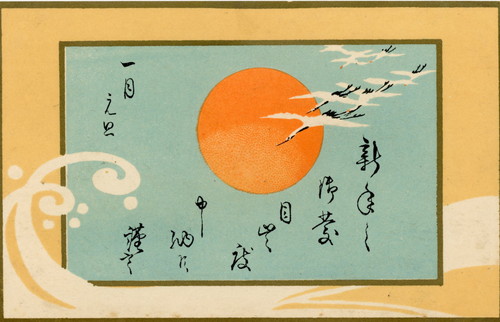 新年之
御慶
目出度
申納候
謹言
一月
元旦